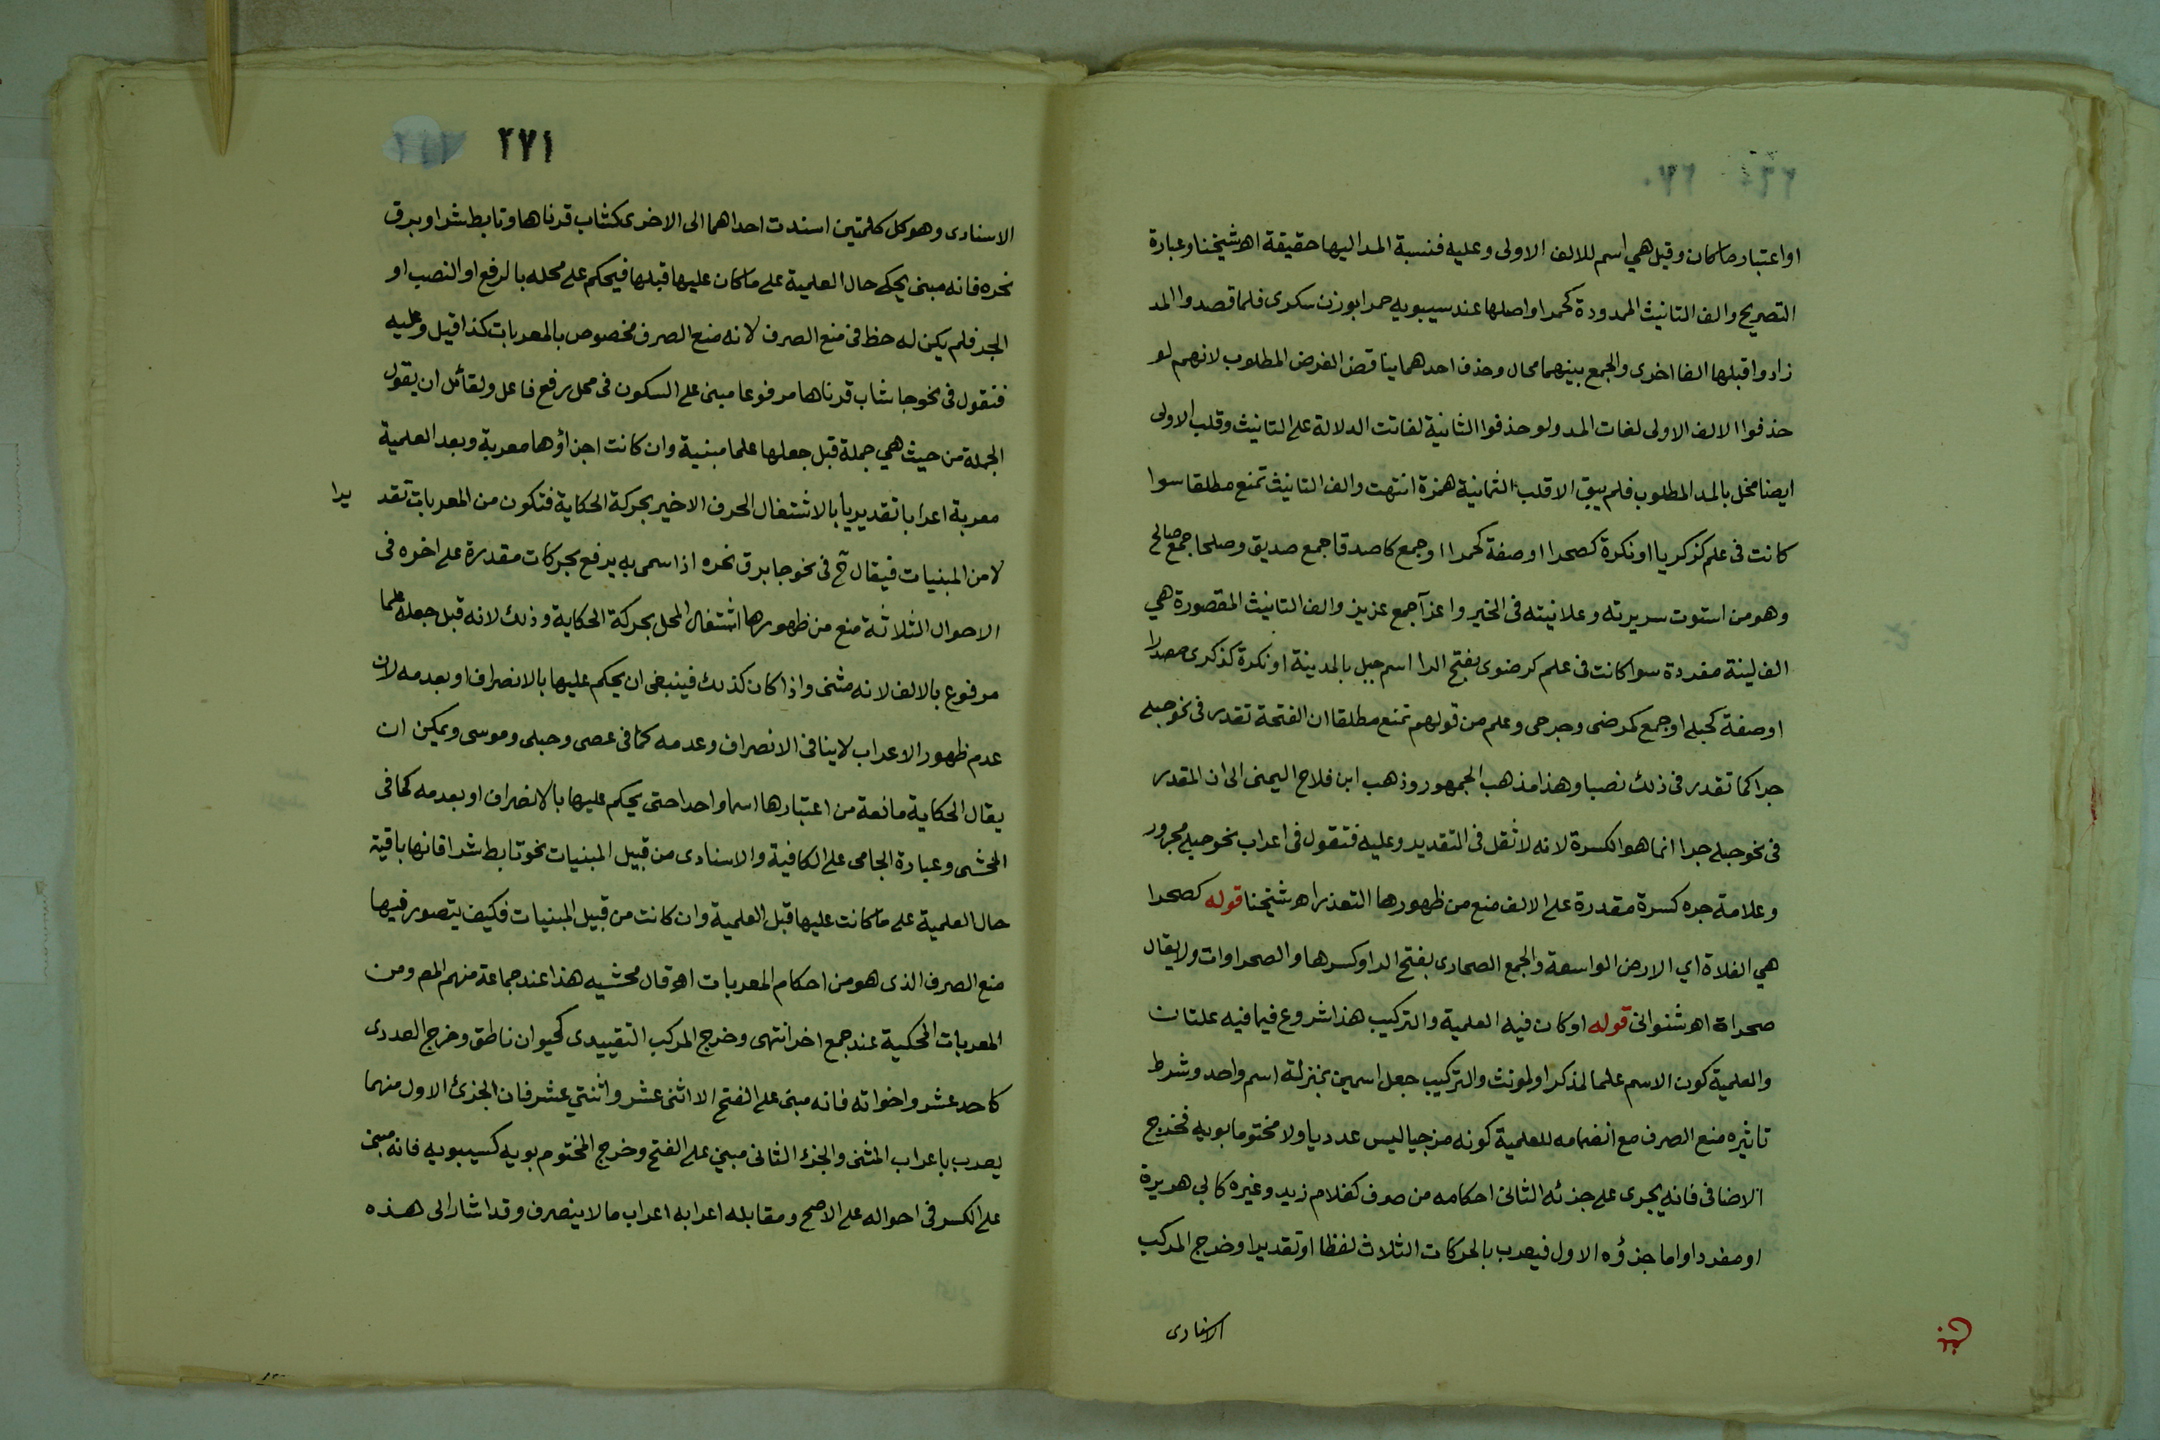 ٢٧٠
او اعتبار ما كان وقيل هي اسم للالف الاولى وعليه فنسبة المد اليها حقيقة اه شيخنا وعبارة
التصريح والف التانيث الممدودة كحمرا واصلها عند سيبويه حمرا بوزن سكرى فلما قصدوا المد
زادوا قبلها الفا اخرى والجمع بينهما محال وحذف احدهما يناقض الغرض المطلوب لانهم لو
حذفوا الالف الاولى لفات المد ولو حذفوا الثانية لفاتت الدلالة على التانيث وقلب الاولى
ايضا مخل بالمد المطلوب فلم يبق الا قلب الثانية همزة انتهت والف التانيث تمنع مطلقا سوا
كانت فى علم كزكريا او نكرة كصحرا او صفة كحمرا ا وجمع كاصدقا جمع صديق وصلحا جمع صالح
وهو من استوت سريرته وعلانيته فى الخير واعزآ جمع عزيز والف التانيث المقصورة هي
الف لينة مفردة سوا كانت فى علم كرضوى بفتح الرا اسم جبل بالمدينة او نكرة كذكرى مصدرا
او صفة كحبلى او جمع كمرضى وجرحى وعلم من قولهم تمنع مطلقا ان الفتحة تقدر فى نحو حبلى
جرا كما تقدر فى ذلك نصبا وهذا مذهب الجمهور وذهب ابن فلاح اليمنى الى ان المقدر
فى نحو حبلى جرا انما هو الكسرة لانه لا ثقل فى التقدير وعليه فتقول فى اعراب نحو حبلى مجرور
وعلامة جره كسرة مقدرة على الالف منع من ظهورها التعذر اه شيخنا قوله كصحرا
هي الفلاة اي الارض الواسعة والجمع الصحارى بفتح الرا وكسرها والصحراوات ولا يقال
صحراة اه شنوانى قوله او كان فيه العلمية والتركيب هذا شروع فيما فيه علتان
والعلمية كون الاسم علما لمذكر او لمونث والتركيب جعل اسمين بمنزلة اسم واحد وشرط
تاثيره منع الصرف مع انضمامه للعلمية كونه مزجيا ليس عدديا ولا مختوما بويه فخرج
الاضافى فانه يجرى على جزئه الثانى احكامه من صرف كغلام زيد وغيره كابي هريرة
او مفردا واما جزؤه الاول فيعرب بالحركات الثلاث لفظا او تقديرا وخرج المركب
الاسنادى
٢٧١
الاسنادى وهو كل كلمتين اسندت احداهما الى الاخرى كشاب قرناها وتابط شرا وبرق
نحره فانه مبنى يحكى حال العلمية على ما كان عليها قبلها فيحكم على محله بالرفع او النصب او
الجر فلم يكن له حظ فى منع الصرف لانه منع الصرف مخصوص بالمعربات كذا قيل وعليه
فنقول فى نحو جا شاب قرناها مرفوعا مبنى على السكون فى محل رفع فاعل ولقائل ان يقول
الجملة من حيث هي جملة قبل جعلها علما مبنية وان كانت اجزاؤها معربة وبعد العلمية
معربة اعرابا تقديريا بالاشتغال الحرف الاخير بحركة الحكاية فتكون من المعربات تقد يرا
لا من المبنيات فيقال ح فى نحو جا برق نحره اذا سمى به يرفع بحركات مقدرة على اخره فى
الاحوال الثلاثة منع من ظهورها اشتغال المحل بحركة الحكاية وذلك لانه قبل جعله علما
مرفوع بالالف لانه مثنى واذا كان كذلك فينبغى ان يحكم عليها بالانصراف او بعدمه لان
عدم ظهور الاعراب لا ينافى الانصراف وعدمه كما فى عصى وحبلى وموسى ويمكن ان
يقال الحكاية مانعة من اعتبارها اسما واحدا حتى يحكم عليها بالانصراف او بعدمه كما فى
المحشى وعبارة الجامى على الكافية والاسنادى من قبيل المبنيات نحو تابط شرا فانها باقية
حال العلمية على ما كانت عليها قبل العلمية وان كانت من قبيل المبنيات فكيف يتصور فيها
منع الصرف الذى هو من احكام المعربات اه قال محشيه هذا عند جماعة منهم المص ومن
المعربات المحكية عند جمع اخر انتهى وخرج المركب التقييدى كحيوان ناطق وخرج العددى
كاحد عشر واخواته فانه مبنى على الفتح الا اثنى عشر واثنتي عشر فان الجزئ الاول منهما
يعرب باعراب المثنى والجزء الثانى مبنى على الفتح وخرج المختوم بويه كسيبويه فانه مبنى
على الكسر فى احواله على الاصح ومقابله اعرابه اعراب ما لا ينصرف وقد اشار الى هذه